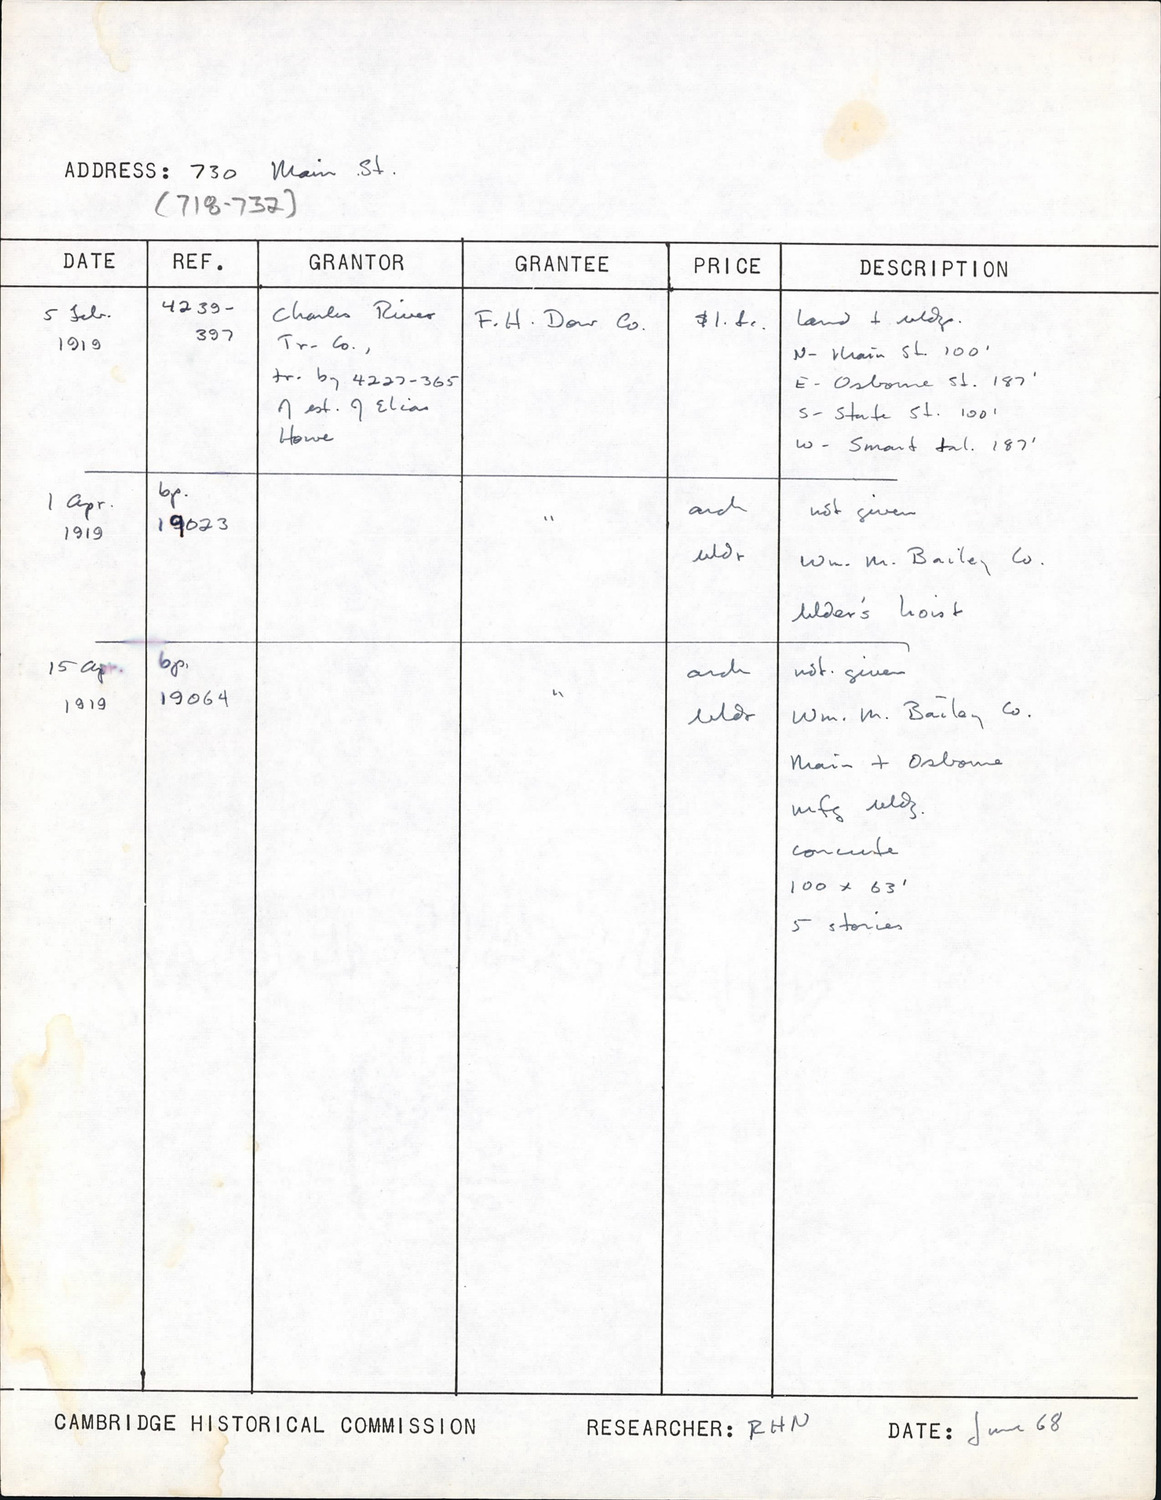 ADDRESS: 730 Main St.
(718-732)
DATE REF. GRANTOR GRANTEE PRICE DESCRIPTION
5 Feb.
1919
4239-
397
Charles River
Tr- Co.,
tr. by 4227-365
of est. of Elias
Howe
F. H. Dow Co.
$1. &c.
land + bldgs.
N- Main St. 100'
E- Osborne St. 187'
S- State St. 100'
W- Smart tal. 187'
1 Apr.
1919
bp.
19023
"
arch
bldr
not given
Wm. M. Bailey Co.
blder's hoist
15 Apr.
1919
bp.
19064
"
arch
bldr
not. given
Wm. M. Bailey Co.
Main + Osborne
mfg bldg.
concrete
100 x 63'
5 stories
CAMBRIDGE HISTORICAL COMMISSION RESEARCHER: RHN DATE: June 68